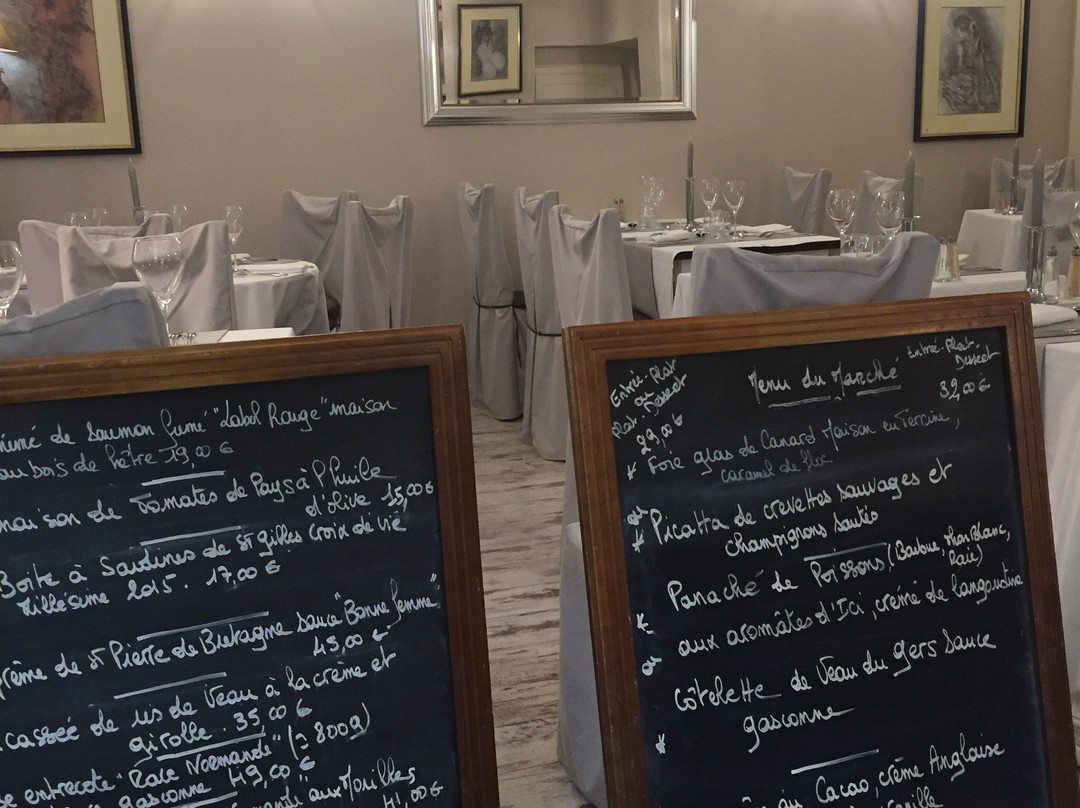 de Saumon fumé "Label Rouge" maison
au bois de hêtre 19,00 €
maison de Tomates de Pays à l'huile
d'olive 15,00 €
Boîte à Sardines de St gilles Croix de vie
Millésime 2015. 17,00 €
de St Pierre de Bretagne sauce "Bonne femme"
45,00 €
de ris de Veau à la crème et
girolle. 35,00 €
entrecote "Race Normande" (≃ 800g)
gasconne 49,00 €
aux Morilles
41,00 €
Entrée. Plat
ou
Plat. Dessert
29,00 €
Menu du Marché
Entrée. Plat.
Dessert
39,00 €
* Foie gras de Canard Maison en Terrine,
caramel de
ou
* Picatta de crevettes sauvages et
champignons sautés
* Panaché de Poissons (Barbue, Merlan Blanc,
Raie)
aux aromates d'Ici, crème de langoustine
ou
côtelette de Veau du gers sauce
gasconne
*
au Cacao, crème Anglaise